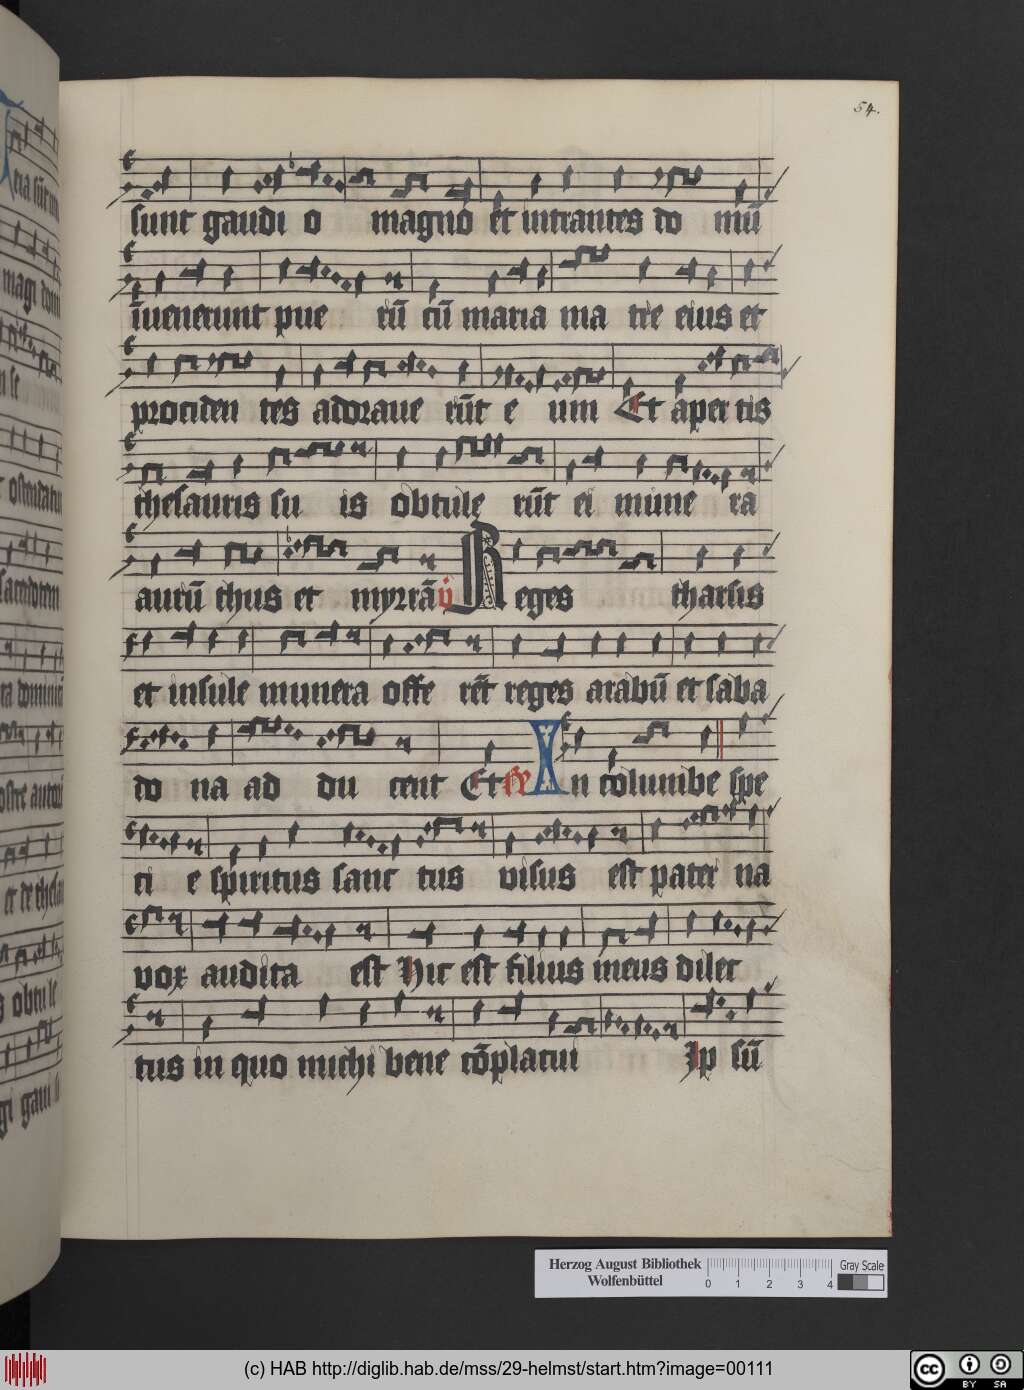 54.
sunt gaudi o magno et intrantes do mū
īuenerunt pue rū cū maria ma tre eius et
prociden tes adoraue rūt e um Et aper tis
thesauris su is obtule rūt ei mune ra
aurū thus et myrrā v̄ Reges tharsis
et insule munera offe rēt reges arabū et saba
do na ad du cent Et In columbe spe
ci e spiritus sanc tus visus est pater na
vox audita est Hic est filius meus dilec
tus in quo michi bene cōplacui Ip sū
ria
magi domi
n se
ostendatur
sacerdotem
ra domini
et de thesau
s obtu le
gi gau
Herzog August Bibliothek
Wolfenbüttel
0 1 2 3 4
Gray Scale
(c) HAB http://diglib.hab.de/mss/29-helmst/start.htm?image=00111
cc BY SA